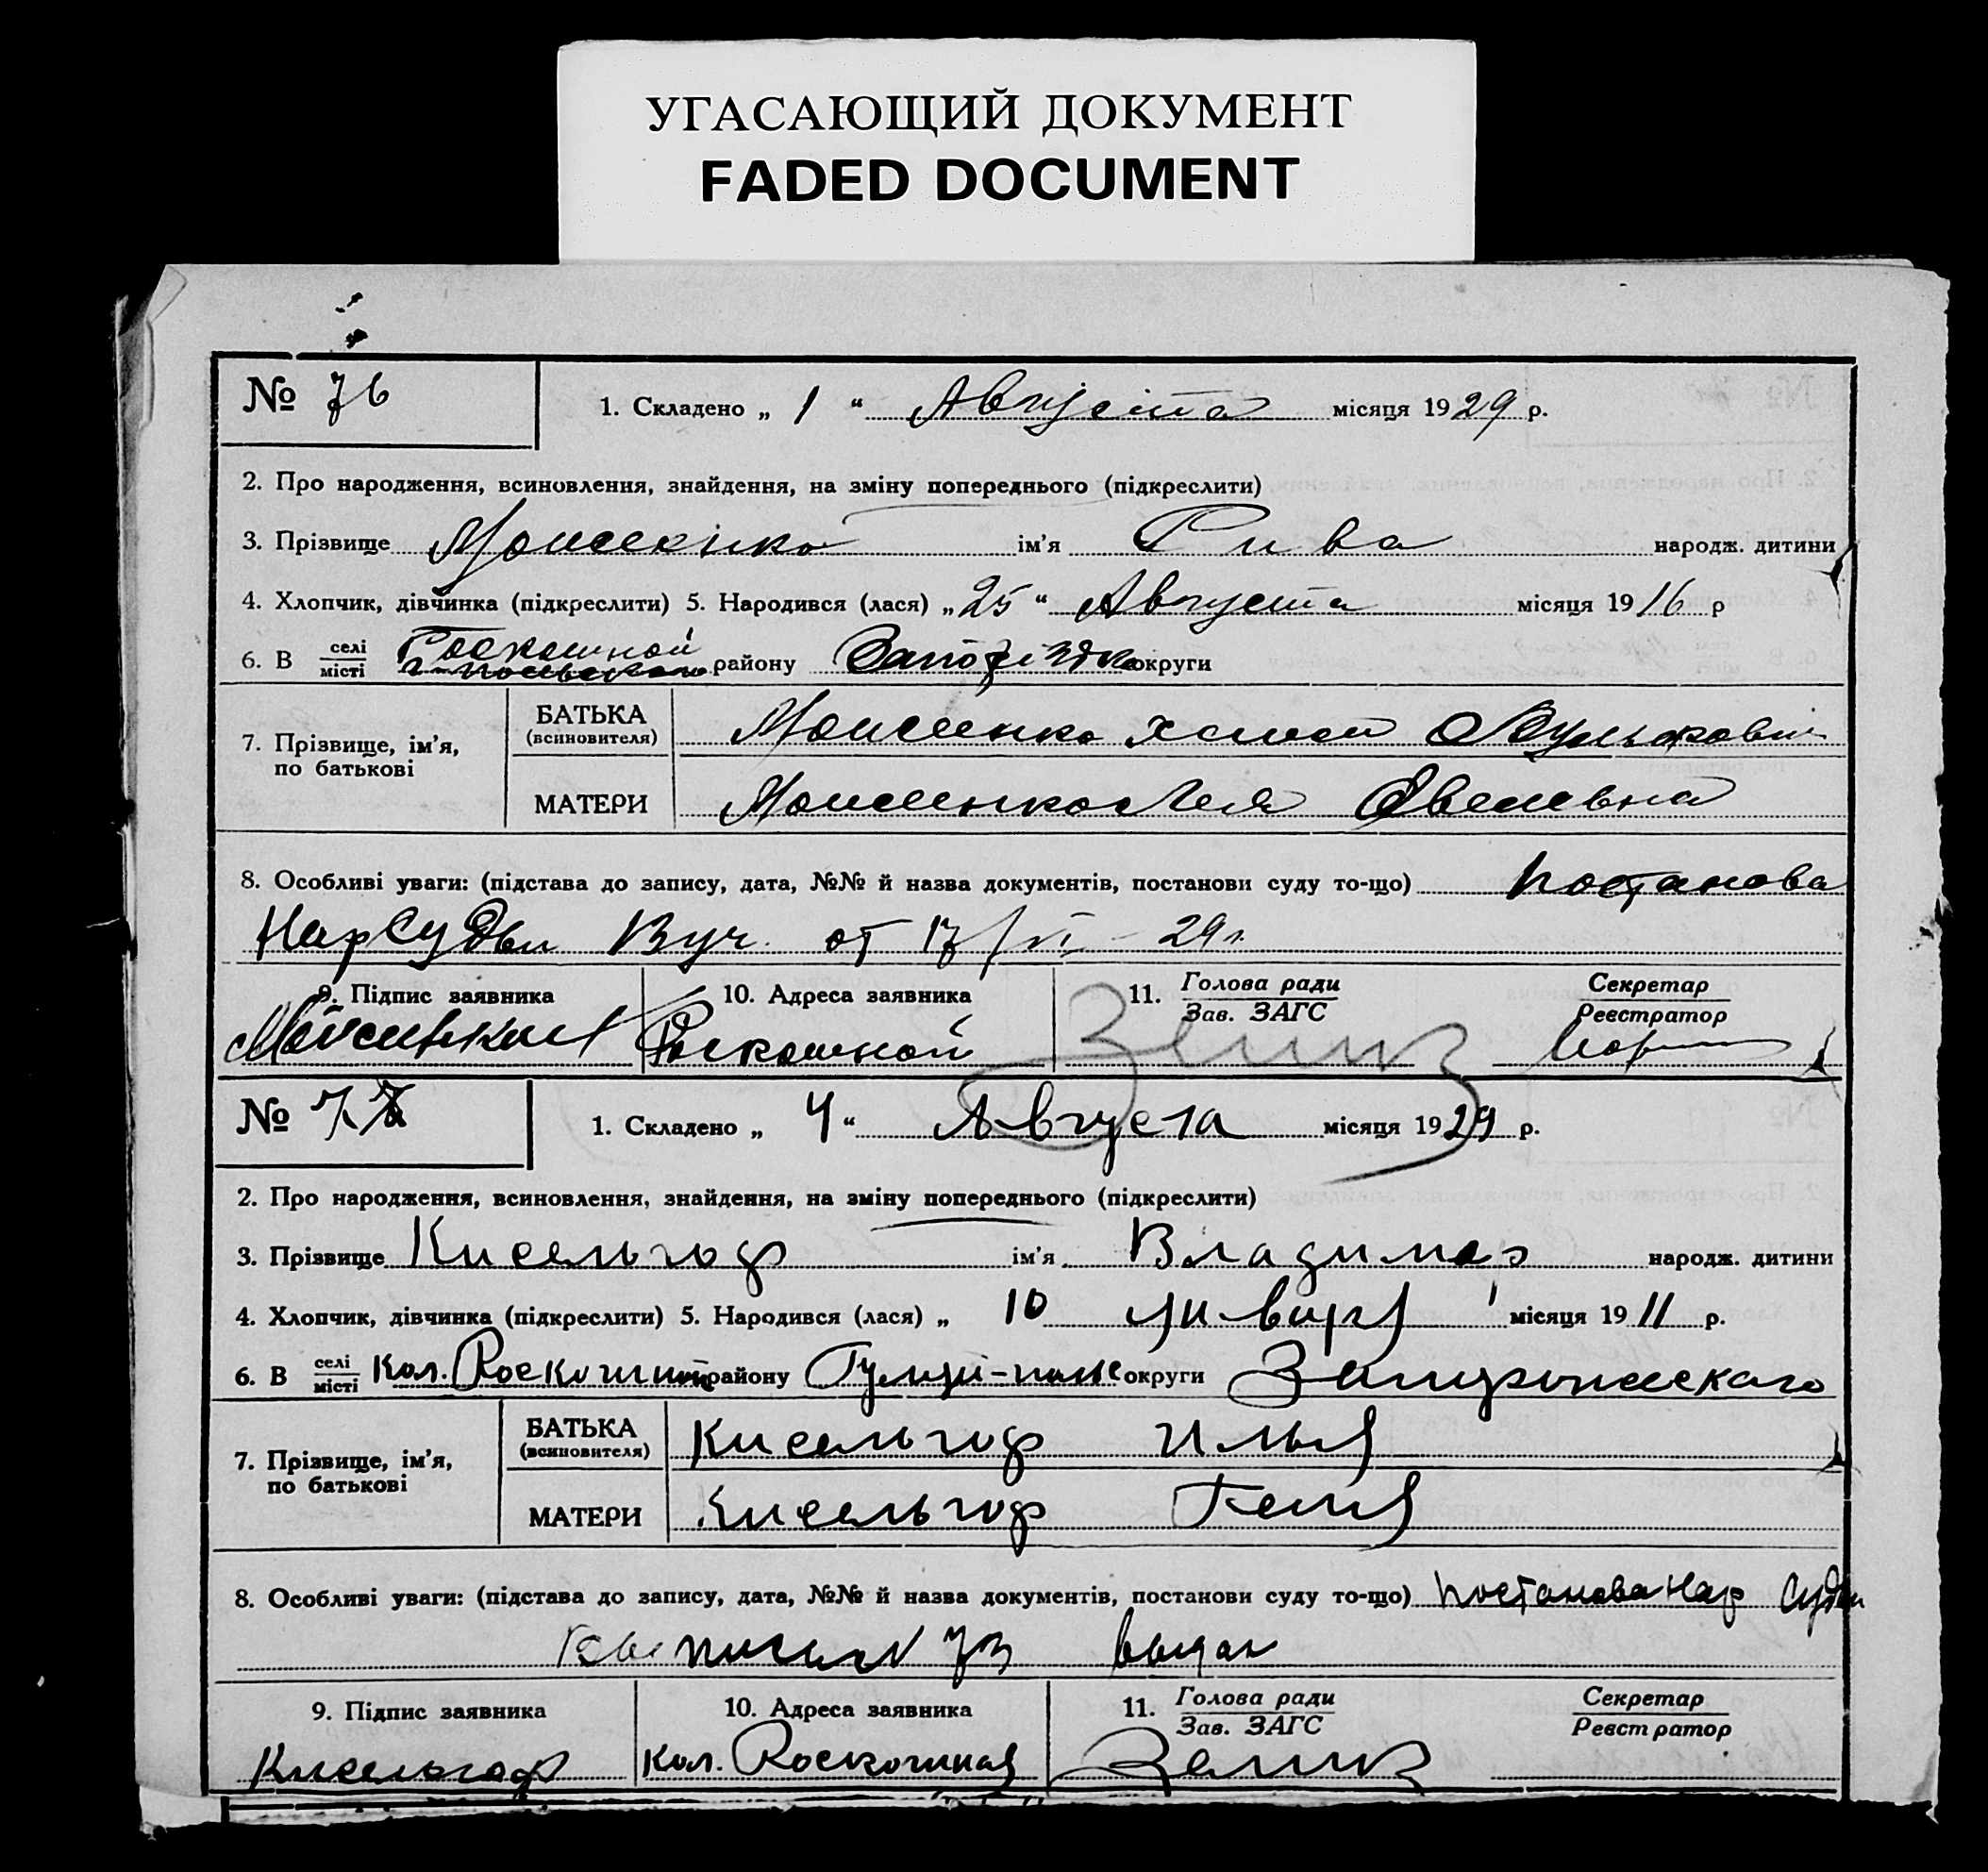 УГАСАЮЩИЙ ДОКУМЕНТ
FADED DOCUMENT
№ 76
1. Складено „ 1 “ Августа місяця 1929 р.
2. Про народження, всиновлення, знайдення, на зміну попереднього (підкреслити)
3. Прізвище Моисеенко ім'я Рива народж. дитини
4. Хлопчик, дівчинка (підкреслити) 5. Народився (лася) „ 25 “ Августа місяця 1916 р
6. В селі/місті Роскошной району округи
7. Прізвище, ім'я, по батькові
БАТЬКА (всиновителя) Моисеенко
МАТЕРИ Моисеенко Лея
8. Особливі уваги: (підстава до запису, дата, №№ й назва документів, постанови суду то-що) постанова
НарСуддьи Вуч. от 17/VI - 29 г.
9. Підпис заявника
10. Адреса заявника Роскошной
11. Голова ради/Зав. ЗАГС
Секретар/Реєстратор
№ 77
1. Складено „ 4 “ Августа місяця 1929 р.
2. Про народження, всиновлення, знайдення, на зміну попереднього (підкреслити)
3. Прізвище Кисельгоф ім'я Владимер народж. дитини
4. Хлопчик, дівчинка (підкреслити) 5. Народився (лася) „ 10 января місяця 1911 р.
6. В селі/місті Кол. Роскошной району Гуляй-поле округи Запорожескаго
7. Прізвище, ім'я, по батькові
БАТЬКА (всиновителя) Кисельгоф Илья
МАТЕРИ Кисельгоф Геня
8. Особливі уваги: (підстава до запису, дата, №№ й назва документів, постанови суду то-що) постанова Нар Судьи
9. Підпис заявника
10. Адреса заявника
11. Голова ради/Зав. ЗАГС
Секретар/Реєстратор
Кисельгоф Кол. Роскошная